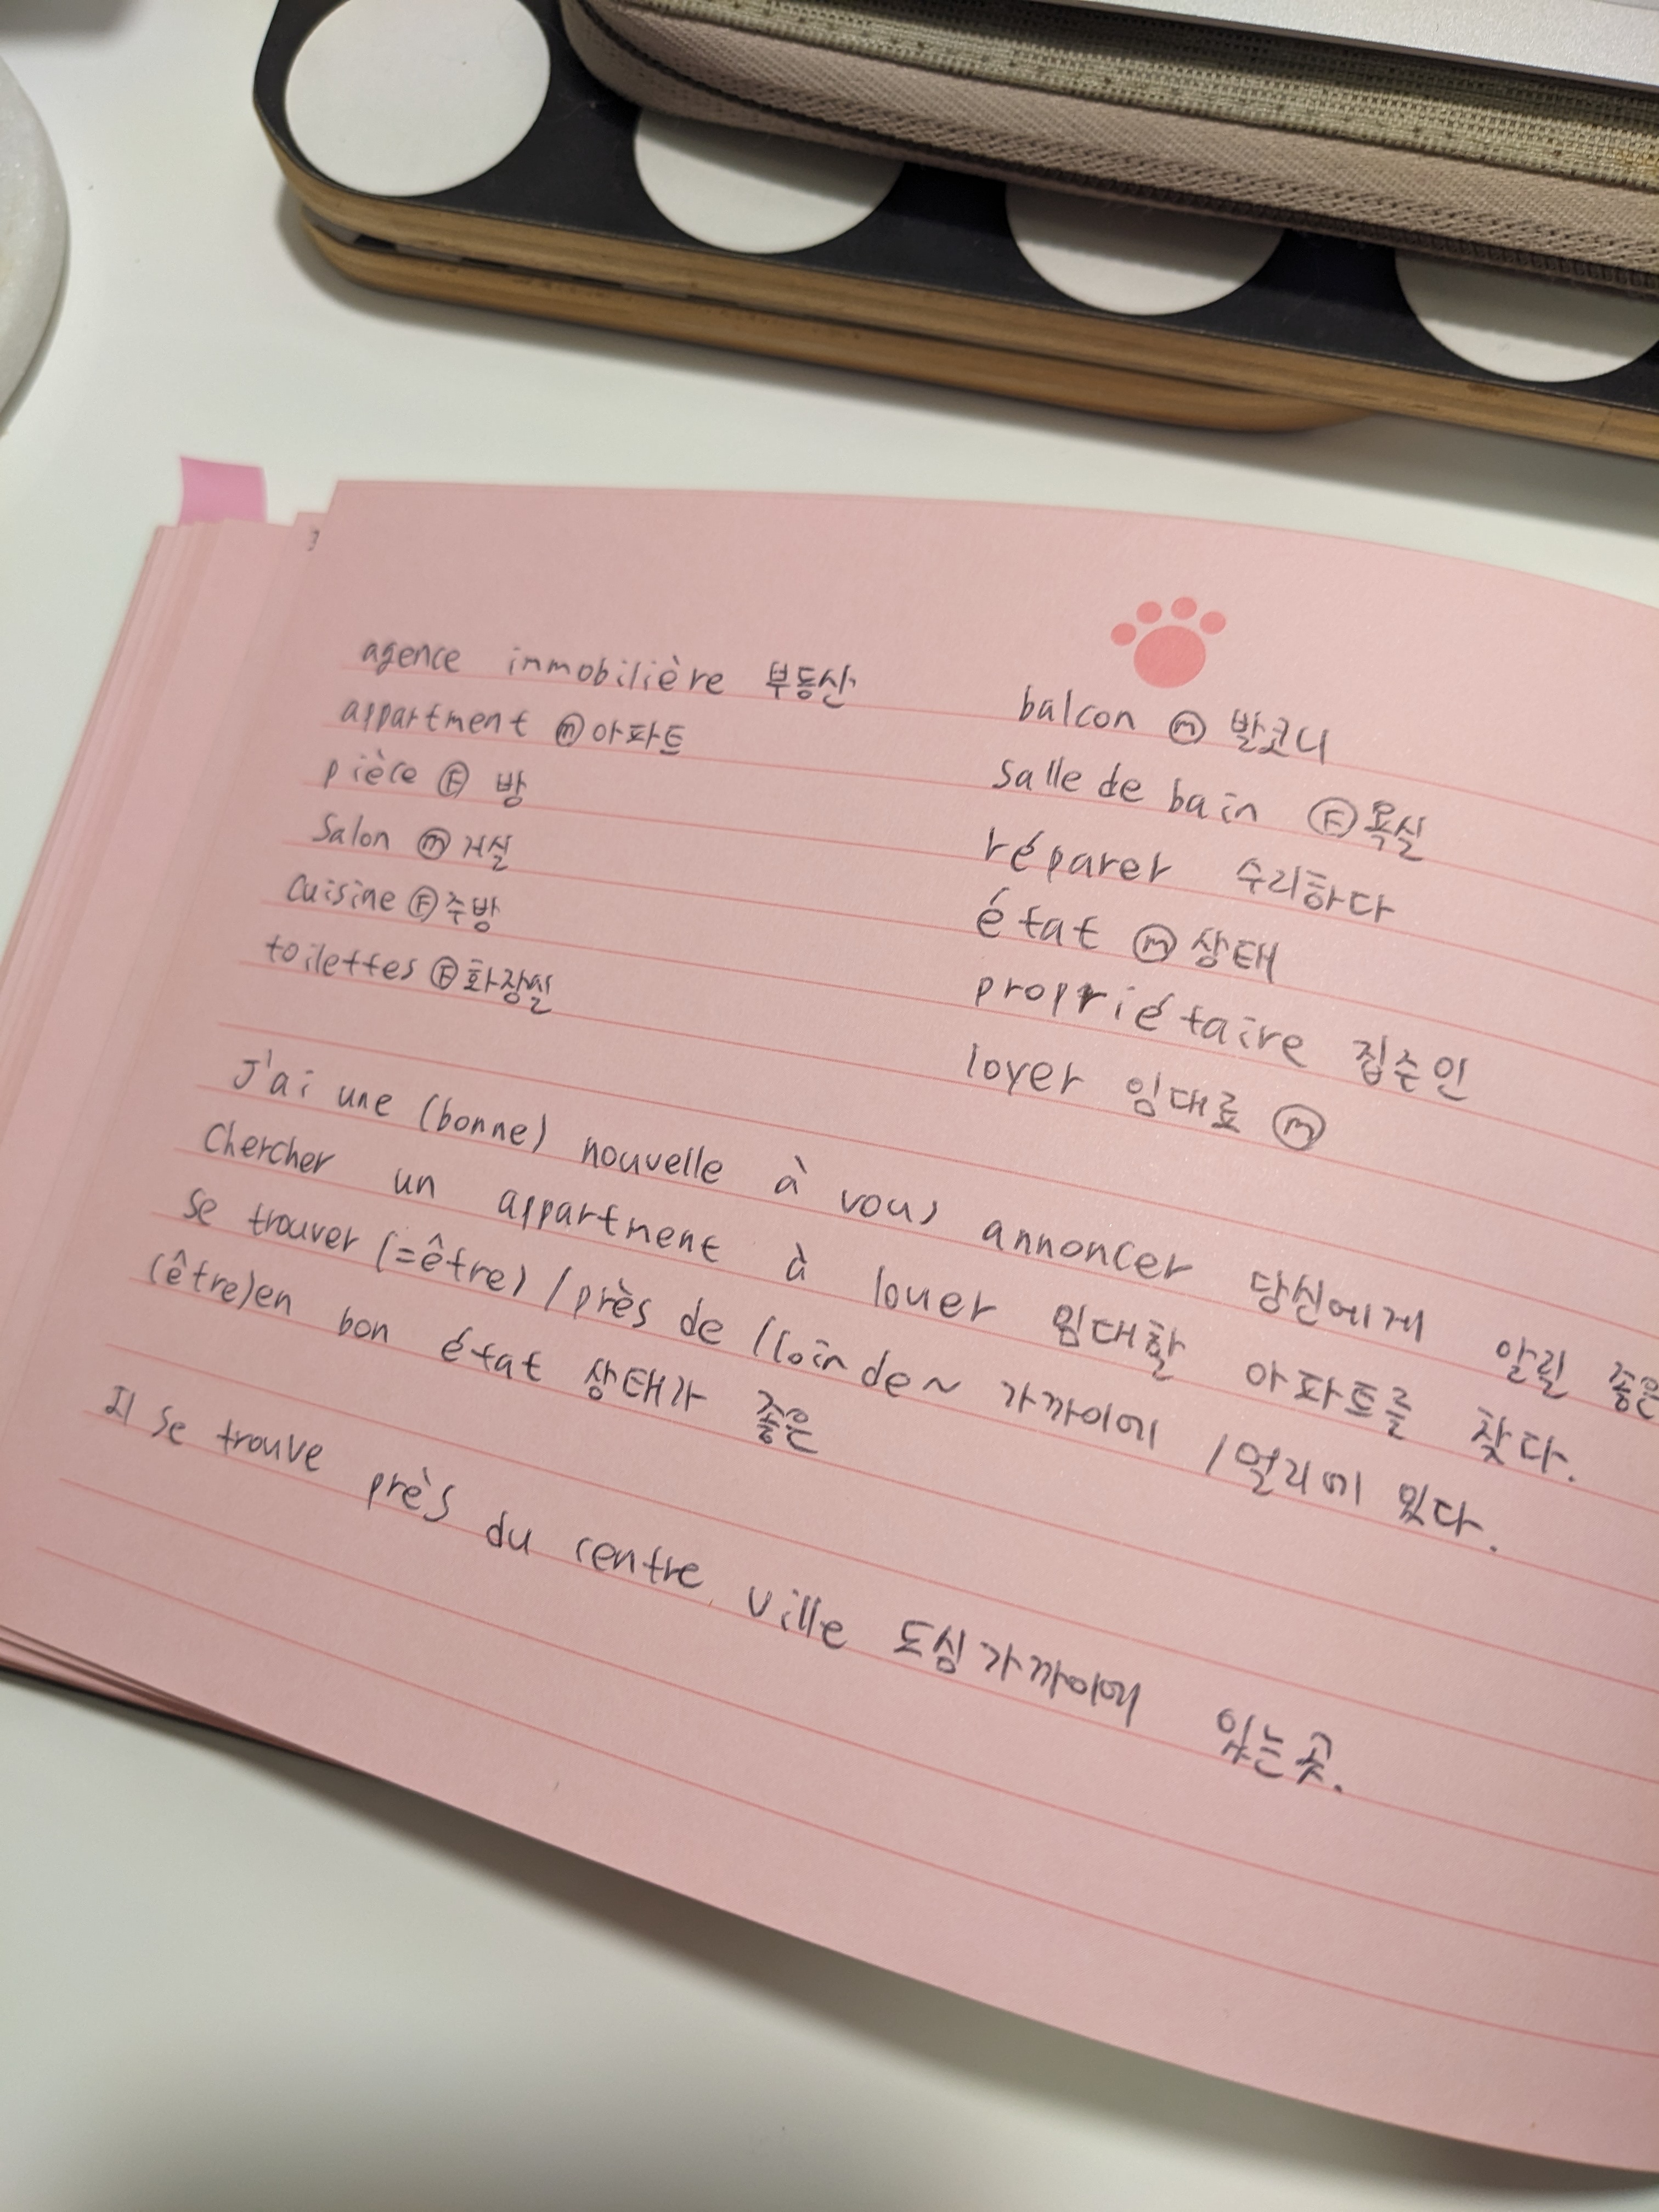 agence immobilière 부동산
appartment ⓜ 아파트
pièce Ⓕ 방
Salon ⓜ 거실
Cuisine Ⓕ 주방
toilettes Ⓕ 화장실
balcon ⓜ 발코니
salle de bain Ⓕ 욕실
réparer 수리하다
état ⓜ 상태
propriétaire 집주인
loyer 임대료 ⓜ
J'ai une (bonne) nouvelle à vous annoncer 당신에게 알릴 좋은
Chercher un appartment à louer 임대할 아파트를 찾다.
se trouver (=être) / près de / loin de ~ 가까이에 / 멀리에 있다.
(être)en bon état 상태가 좋은
Il se trouve près du centre ville 도심 가까이에 있는 곳.